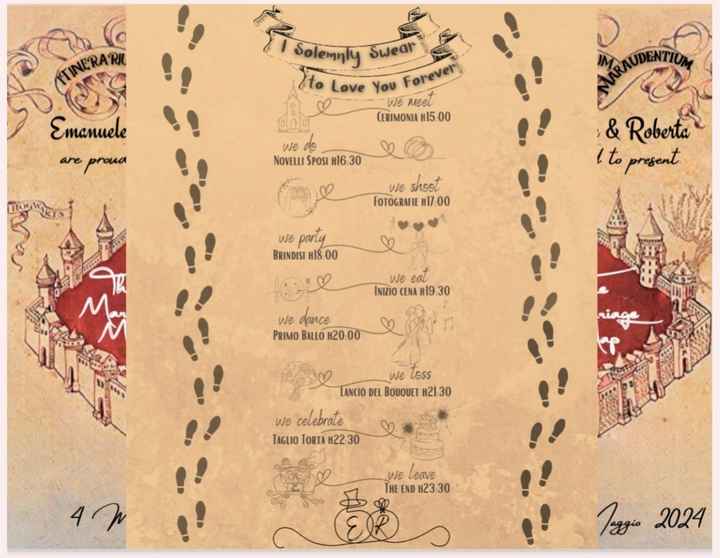 I Solemnly Swear
to Love You Forever
we meet
Cerimonia h15:00
we do
Novelli Sposi h16.30
we shoot
Fotografie h17:00
we party
Brindisi h18:00
we eat
Inizio cena h19.30
we dance
Primo Ballo h20:00
we toss
Lancio del Bouquet h21.30
we celebrate
Taglio Torta h22:30
we leave
The end h23.30
E R
Emanuele
are
HOGWARTS
4
MARAUDENTIUM
& Roberta
to present
Maggio 2024